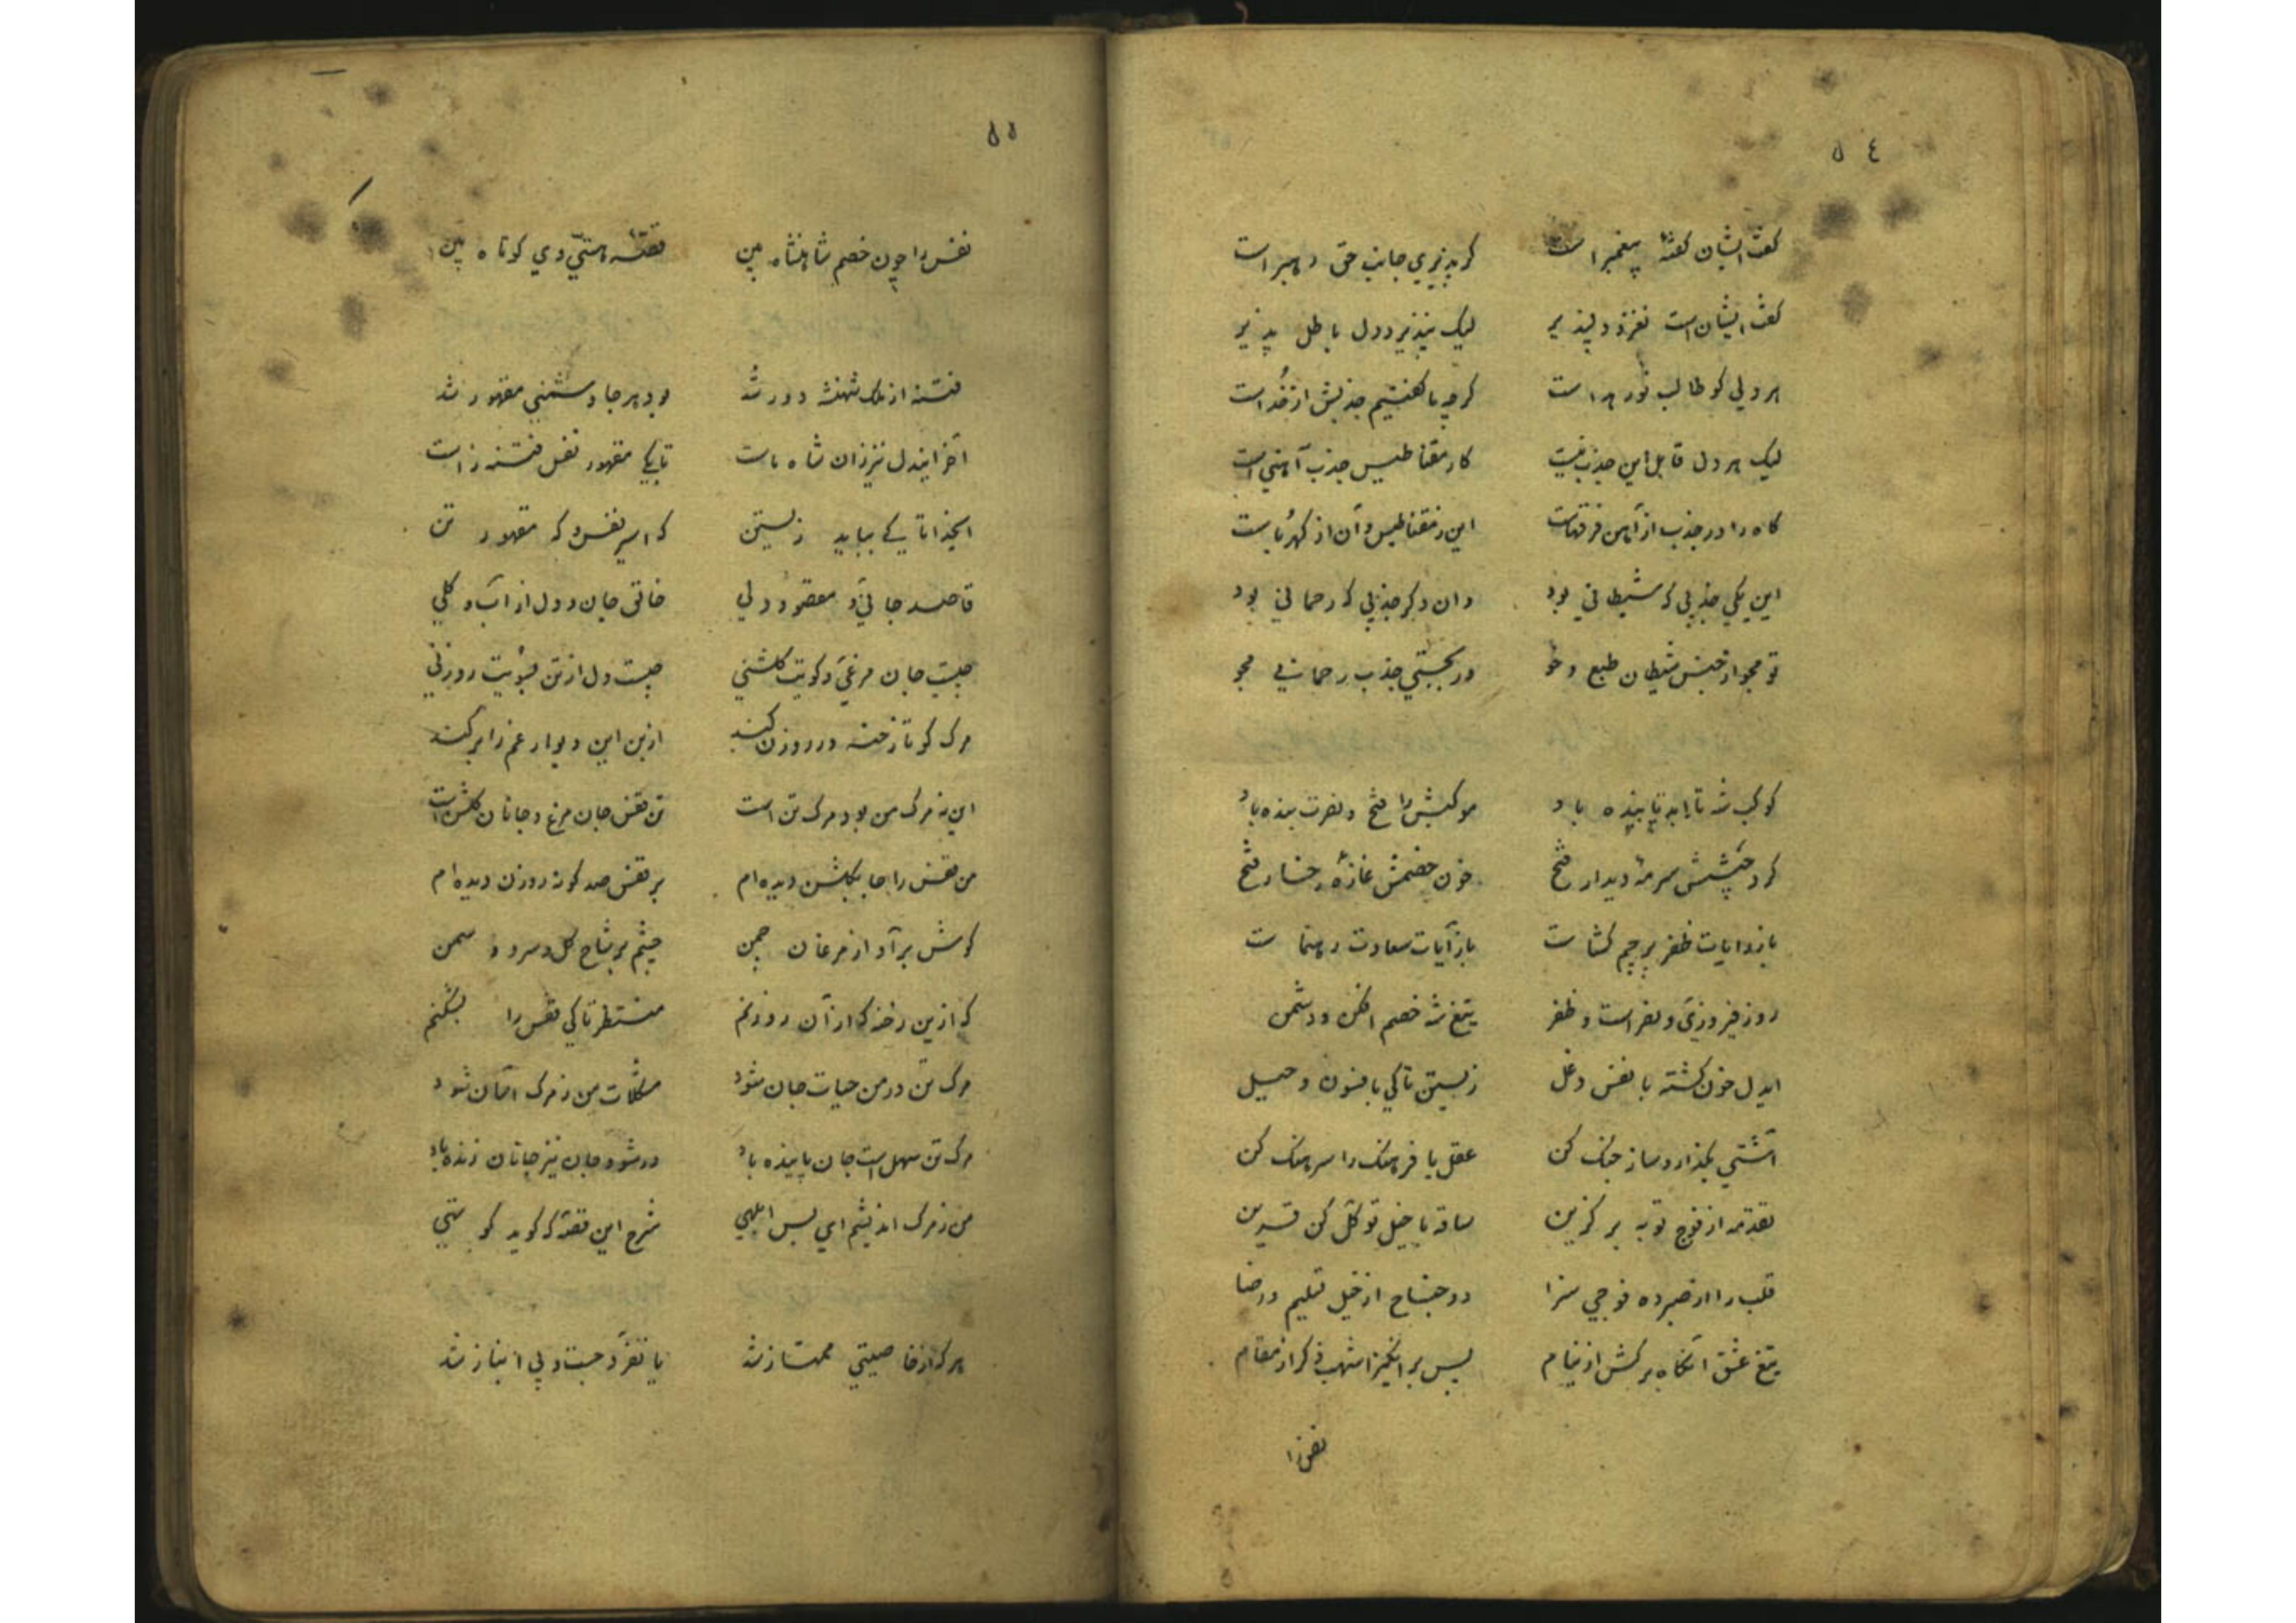 ٥٤
گفت ایشان گفتهٔ پیغمبر است گر پذیری جانب حق رهبر است
گفت ایشان است نغز و دلپذیر لیک نپذیرد دل باطل پذیر
هر دلی کو طالب نور هداست گرچه ما گفتیم جذبش از خداست
لیک هر دل قابل این جذب نیست کار مقناطیس جذب آهنی است
کاه را در جذب از آهن فرقهاست این ز مقناطیس و آن از کهرباست
این یکی جذبی که شیطانی بود وان دگر جذبی که رحمانی بود
تو مجو از جنس شیطان طبع و خو ور بجستی جذب رحمانی مجو
کوکب شه تا ابد تابنده باد موکبش را فتح و نصرت بنده باد
گرد جیشش سرمهٔ دیدار فتح خون خصمش غازهٔ رخسار فتح
باز رایات ظفر پرچم گشاست باز آیات سعادت رهنماست
روز فیروزی و نصر است و ظفر تیغ شه خصم افکن و دشمن
ایدل خون گشته با نفس دغل زیستن تا کی بافسون و حیل
آشتی بگذار و ساز جنگ کن عقل با فرهنگ را سرهنگ کن
مقدمه از فوج توبه بر گزین ساقه با خیل توکل کن قرین
قلب را از صبر ده فوجی سزا دو جناح از خیل تسلیم و رضا
تیغ عشق آنگاه بر کش از نیام پس بر انگیز اشهب فکر از مقام
نفس را
٥٥
نفس را چون خصم شاهنشاه بین قصّه هستی وی کوتاه بین
فتنه از ملک شهنشه دور شد بود هر جا دشمنی مقهور شد
آخر ایندل نیز زان شاه ماست تا بکی مقهور نفس فتنه زاست
ایخدا تا کی بباید زیستن که اسیر نفس و که مقهور تن
قاصد جانی و مقصود دلی خالق جان و دل از آب و گلی
چیست جان مرغی و کویت گلشنی چیست دل از تن بسویت روزنی
مرگ کو تا رخنه در روزن کند از بن این دیوار غم را بر کند
این نه مرگ من بود مرگ تن است تن قفس جان مرغ و جانان گلشن است
من قفس را جا بگلشن دیده ام بر قفس صد گونه روزن دیده ام
گوش بر آواز مرغان چمن چشم بر شاخ گل و سرو و سمن
که ازین رخنه که از آن روزنم منتظر تا کی قفس را بشکنم
مرگ تن در من حیات جان شود مشکلات من ز مرگ آسان شود
مرگ تن سهل است جان پاینده باد ور شود جان نیز جانان زنده باد
من ز مرگ اندیشم ای بس ابلهی شرح این قصّه که گوید کو بهی
هر که از خاصیتی ممتاز شد با تفرّد جست و بی انباز شد